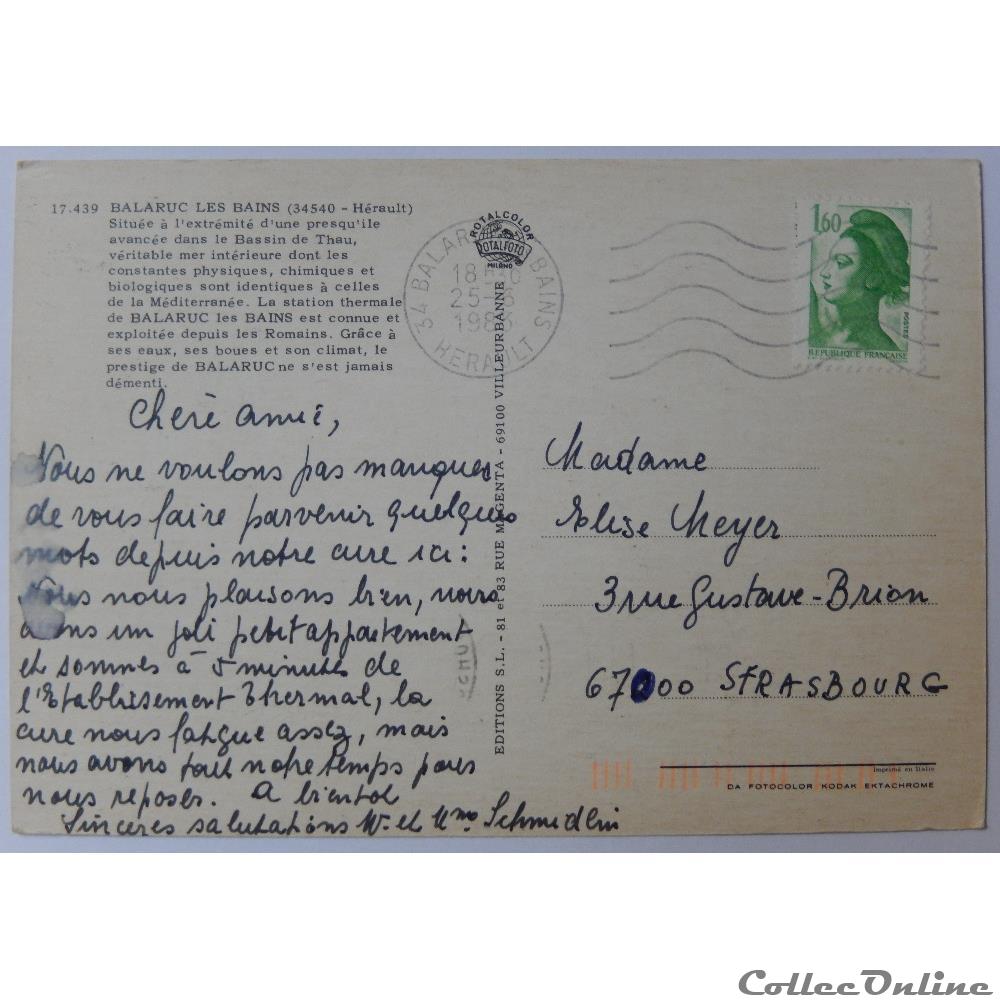 17.439 BALARUC LES BAINS (34540 - Hérault)
Située à l'extrémité d'une presqu'ile
avancée dans le Bassin de Thau,
véritable mer intérieure dont les
constantes physiques, chimiques et
biologiques sont identiques à celles
de la Méditerranée. La station thermale
de BALARUC les BAINS est connue et
exploitée depuis les Romains. Grâce à
ses eaux, ses boues et son climat, le
prestige de BALARUC ne s'est jamais
démenti.
Chère amie,
Nous ne voulons pas manquer
de vous faire parvenir quelques
mots depuis notre cure ici:
Nous nous plaisons bien, nous
avons un joli petit appartement
et sommes à 5 minutes de
l'Etablissement Thermal, la
cure nous fatigue assez, mais
nous avons tout notre temps pour
nous reposer. A bientot
Sincères salutations Mr et Mme Schmidlin
ROTALCOLOR
ROTALFOTO
MILANO
34 BALARUC BAINS
18 H
25-6
1986
HERAULT
EDITIONS S.L. - 81 et 83 RUE MAGENTA - 69100 VILLEURBANNE
1,60
POSTES
REPUBLIQUE FRANÇAISE
Madame
Elise Meyer
3 rue Gustave-Brion
67000 STRASBOURG
Imprimé en Italie
DA FOTOCOLOR KODAK EKTACHROME
CollecOnline